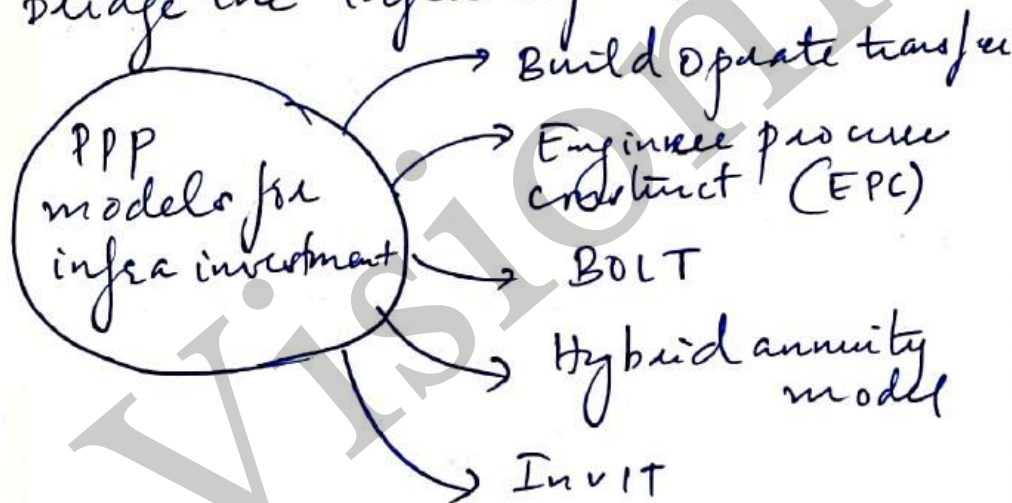 Bridge the
PPP
models for
infra investment
Build operate transfer
Engineer procure
construct (EPC)
BOLT
Hybrid annuity
model
InvIT
Vision